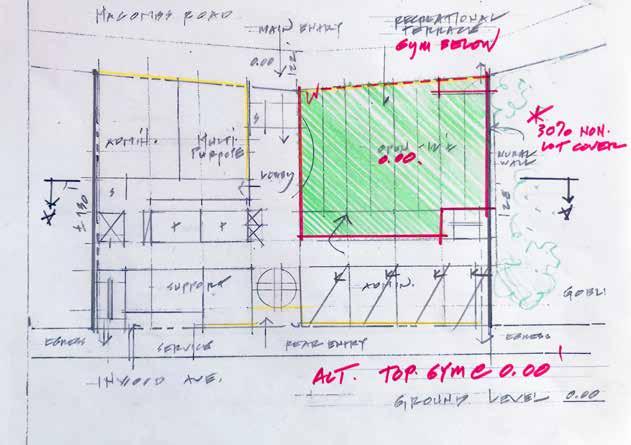 MACOMBS ROAD
MAIN ENTRY
0.00
RECREATIONAL
TERRACE
GYM BELOW
ADMIN.
MULTI
PURPOSE
LOBBY
S
S
0.00.
MURAL
WALL
* 30% NON.
LOT COVER
± 130
SUPPORT
ADMIN.
EGRESS
SERVICE
REAR ENTRY
EGRESS
INWOOD AVE.
ALT. TOP. GYM @ 0.00
GROUND LEVEL 0.00